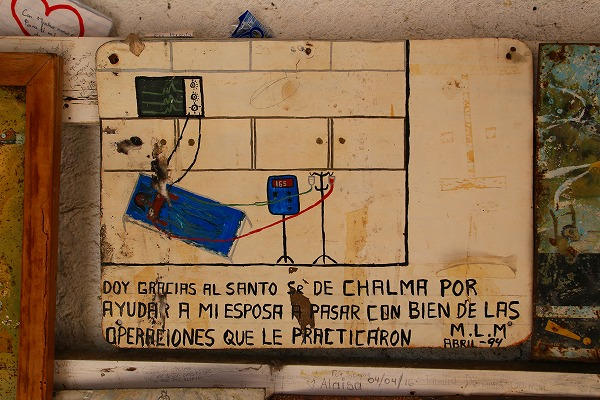 165
DOY GRACIAS AL SANTO Sr DE CHALMA POR
AYUDAR A MI ESPOSA A PASAR CON BIEN DE LAS
OPERACIONES QUE LE PRACTICARON M.L.M
ABRIL-94
Alaisa 04/04/16